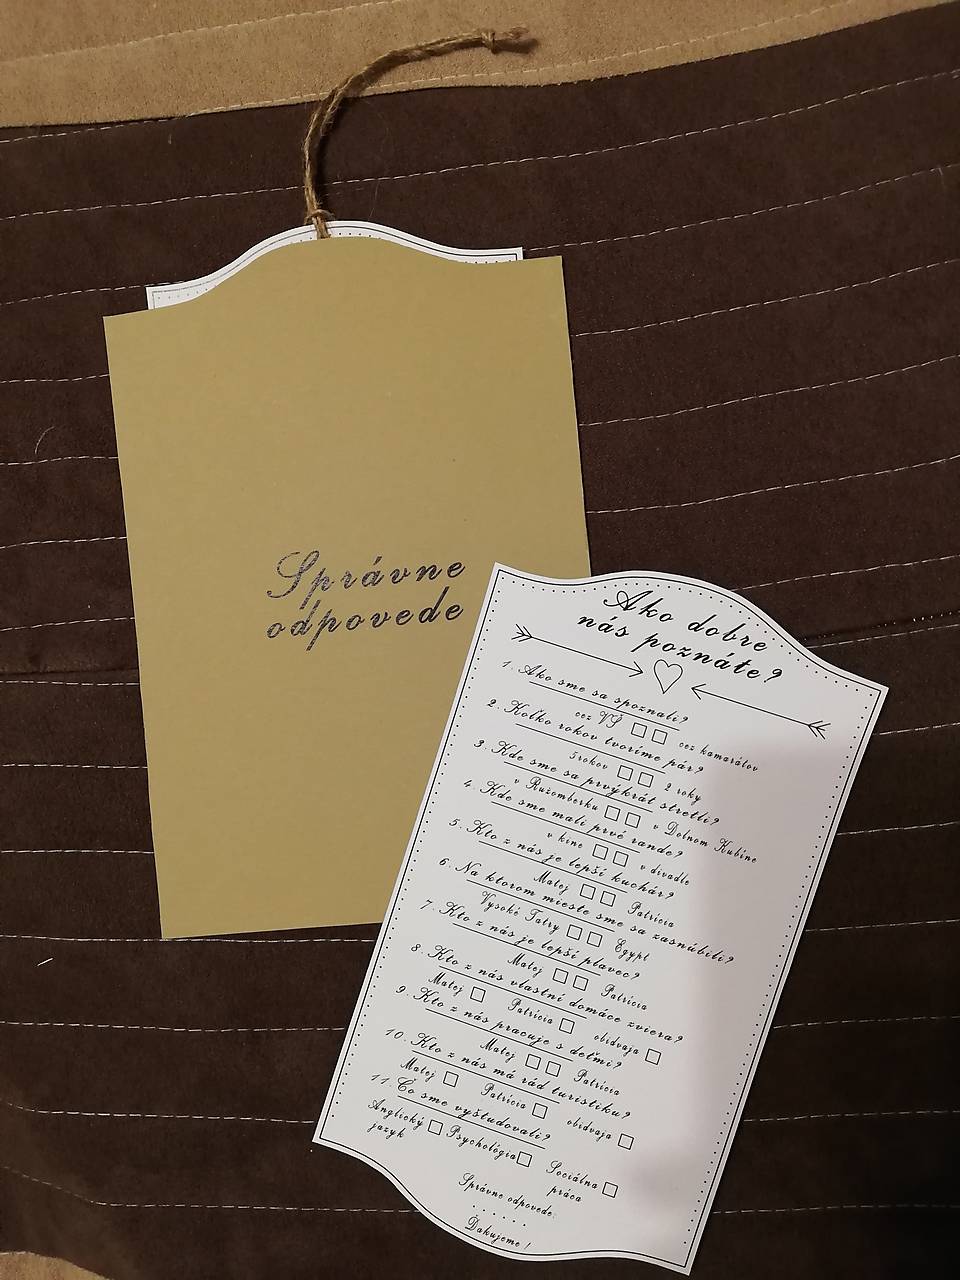 Správne
odpovede
Ako dobre
nás poznáte?
1. Ako sme sa spoznali?
cez VŠ □ □ cez kamarátov
2. Koľko rokov tvoríme pár?
5rokov □ □ 2 roky
3. Kde sme sa prvýkrát stretli?
v Ružomberku □ □ v Dolnom Kubíne
4. Kde sme mali prvé rande?
v kine □ □ v divadle
5. Kto z nás je lepší kuchár?
Matej □ □ Patrícia
6. Na ktorom mieste sme sa zasnúbili?
Vysoké Tatry □ □ Egypt
7. Kto z nás je lepší plavec?
Matej □ □ Patrícia
8. Kto z nás vlastní domáce zviera?
Matej □ Patrícia □ obidvaja □
9. Kto z nás pracuje s deťmi?
Matej □ □ Patrícia
10. Kto z nás má rád turistiku?
Matej □ Patrícia □ obidvaja □
11. Čo sme vyštudovali?
Anglický □ Psychológia □ Sociálna □
jazyk práca
Správne odpovede:
. . . . . .
Ďakujeme !